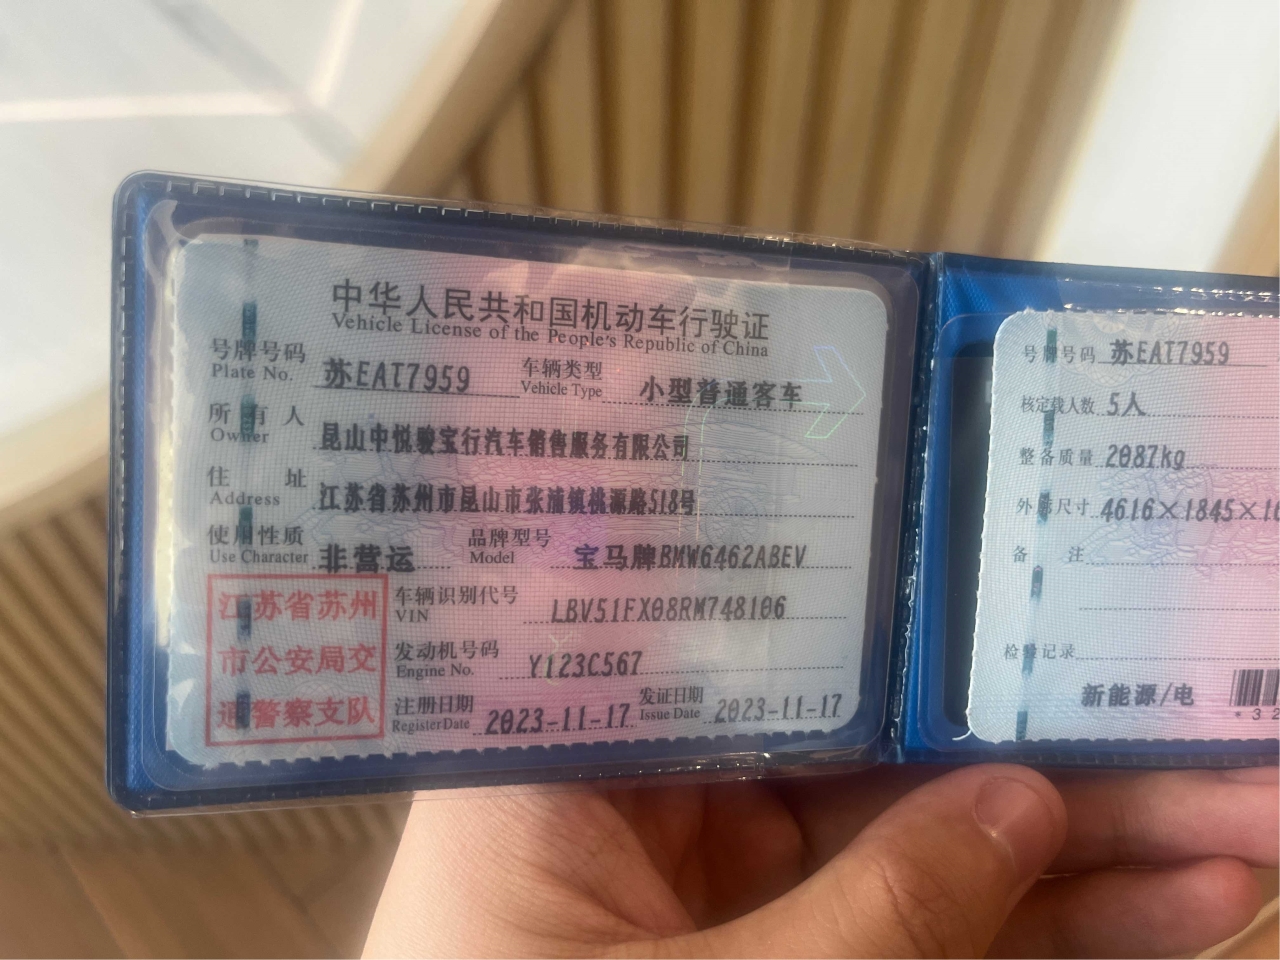 中华人民共和国机动车行驶证
Vehicle License of the People's Republic of China
号牌号码 苏EAT7959 车辆类型 小型普通客车
Plate No. Vehicle Type
所有人 昆山中悦骏宝行汽车销售服务有限公司
Owner
住址 江苏省苏州市昆山市张浦镇桃源路518号
Address
使用性质 非营运 品牌型号 宝马牌BMW6462ABEV
Use Character Model
江苏省苏州
市公安局交
通警察支队
车辆识别代号 LBV51FX08RM748106
VIN
发动机号码 Y123C567
Engine No.
注册日期 2023-11-17 发证日期 2023-11-17
Register Date Issue Date
号牌号码 苏EAT7959
核定载人数 5人
整备质量 2087kg
外廓尺寸 4616×1845×1
备注
检验记录
新能源/电
*32